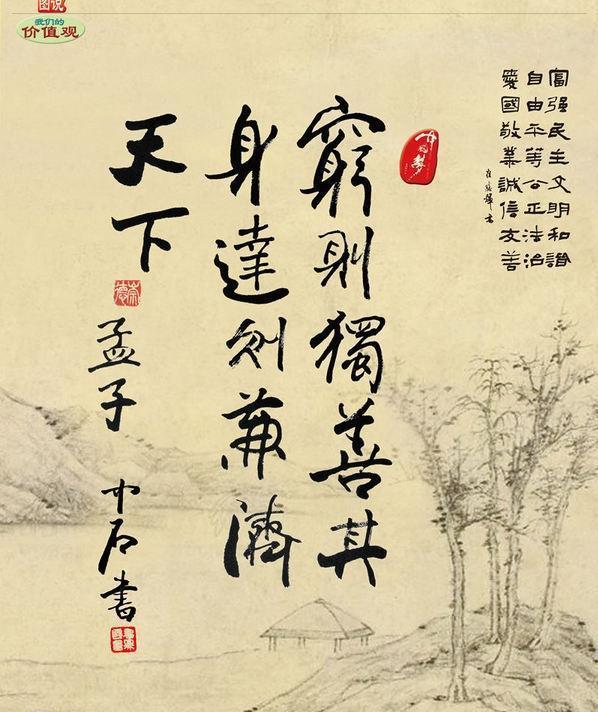 图说
我们的
价值观
富强民主文明和諧
自由平等公正法治
愛國敬業誠信友善
中国夢
窮則獨善其
身達则兼濟
天下
崇德
孟子 中石書